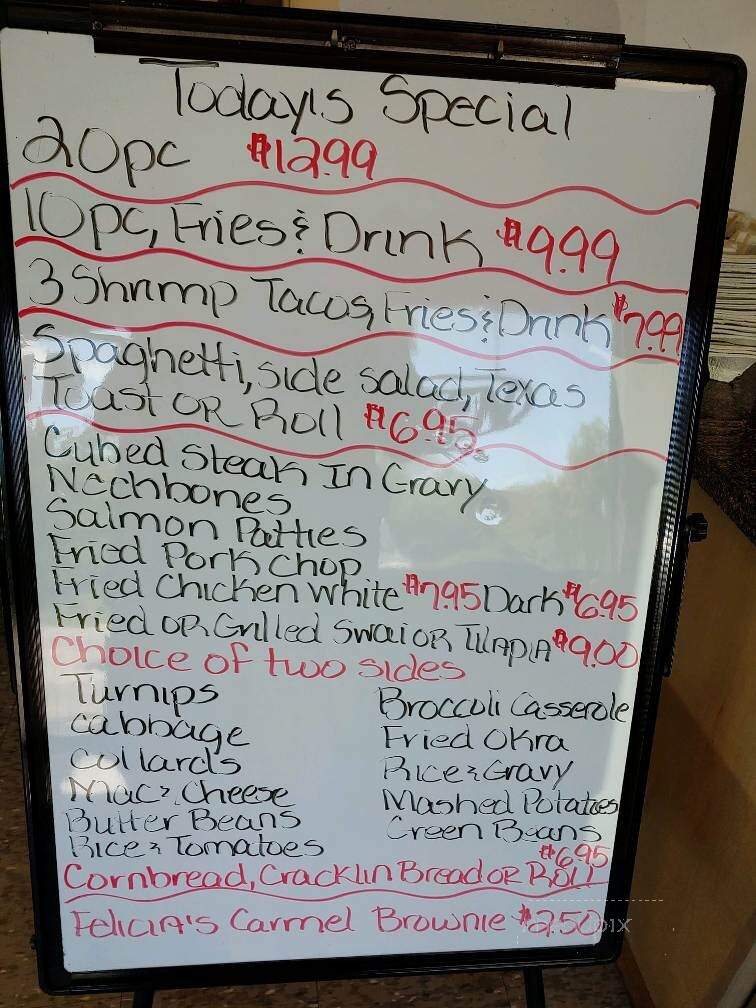 Today's Special
20pc $12.99
10pc, Fries & Drink $9.99
3 Shrimp Tacos, Fries & Drink $7.99
Spaghetti, side salad, Texas
Toast OR Roll $6.95
Cubed Steak In Gravy
Neckbones
Salmon Patties
Fried Pork Chop
Fried Chicken White $7.95 Dark $6.95
Fried OR Grilled Swai OR Tilapia $9.00
Choice of two sides
Turnips
Cabbage
Collards
Mac & Cheese
Butter Beans
Rice & Tomatoes
Broccoli Casserole
Fried Okra
Rice & Gravy
Mashed Potatoes
Green Beans
$6.95
Cornbread, Cracklin Bread OR Roll
Felicia's Carmel Brownie $2.50